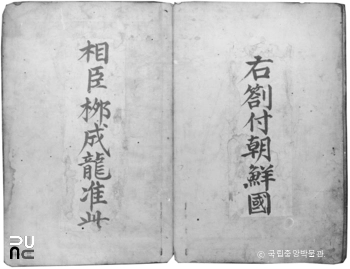 右劄付朝鮮國
相臣柳成龍准此
© 국립중앙박물관